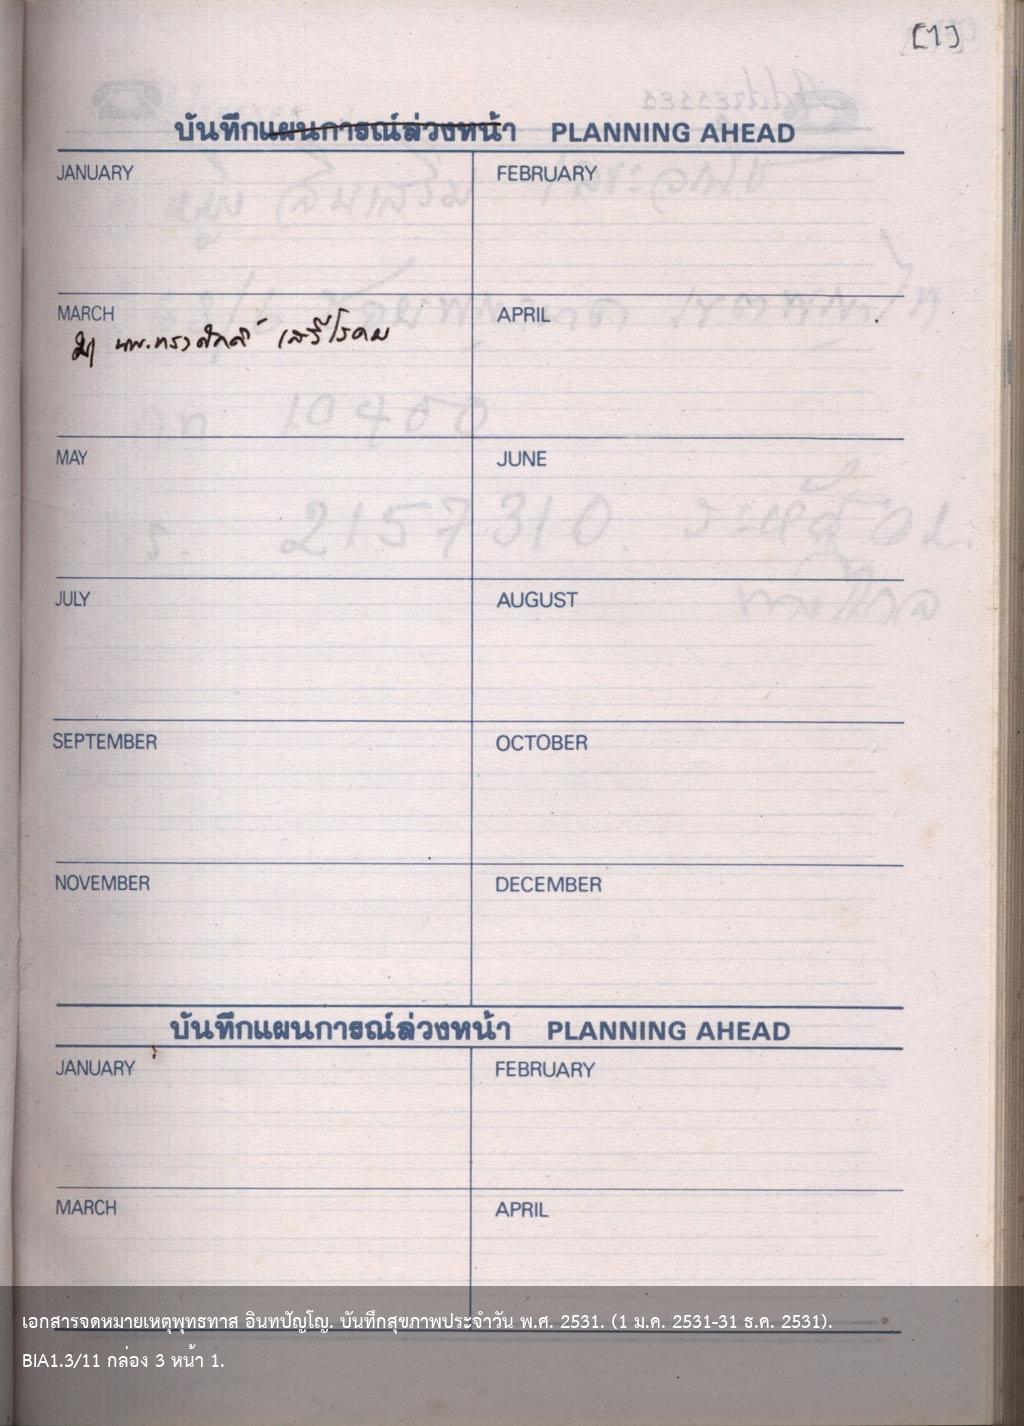 [1]
บันทึกแผนการณ์ล่วงหน้า PLANNING AHEAD
JANUARY FEBRUARY
MARCH APRIL
นพ.ทรงศักดิ์ เสรีโรดม
MAY JUNE
JULY AUGUST
SEPTEMBER OCTOBER
NOVEMBER DECEMBER
บันทึกแผนการณ์ล่วงหน้า PLANNING AHEAD
JANUARY FEBRUARY
MARCH APRIL
เอกสารจดหมายเหตุพุทธทาส อินทปัญโญ. บันทึกสุขภาพประจำวัน พ.ศ. 2531. (1 ม.ค. 2531-31 ธ.ค. 2531).
BIA1.3/11 กล่อง 3 หน้า 1.